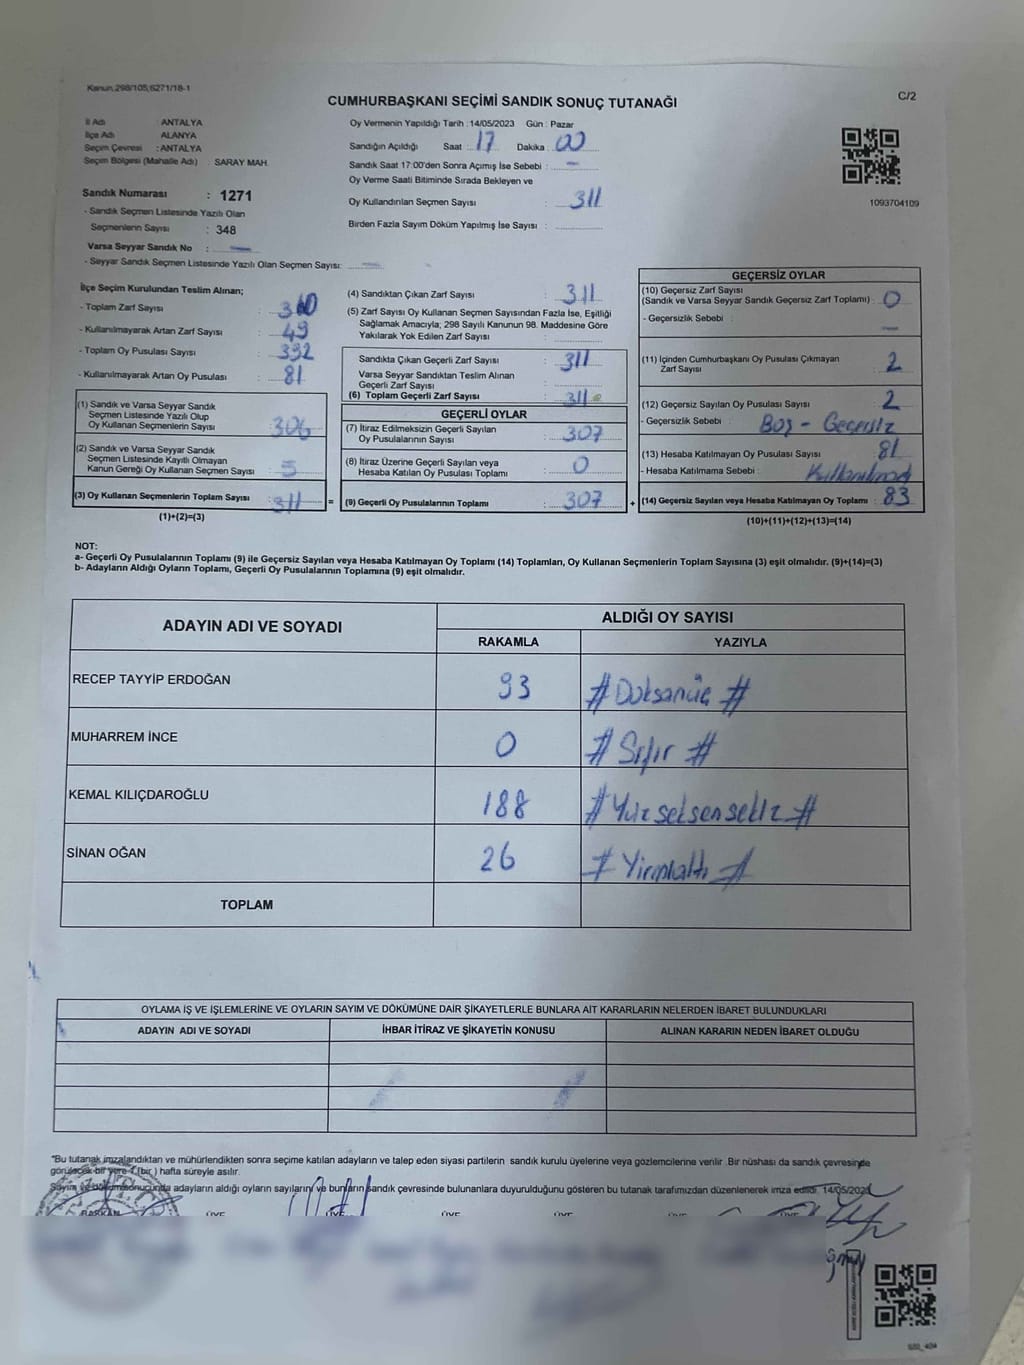 Kanun.298/105,6271/18-1
C/2
CUMHURBAŞKANI SEÇİMİ SANDIK SONUÇ TUTANAĞI
İl Adı : ANTALYA
İlçe Adı : ALANYA
Seçim Çevresi : ANTALYA
Seçim Bölgesi (Mahalle Adı) SARAY MAH.
Sandık Numarası : 1271
- Sandık Seçmen Listesinde Yazılı Olan
Seçmenlerin Sayısı : 348
Varsa Seyyar Sandık No : —
- Seyyar Sandık Seçmen Listesinde Yazılı Olan Seçmen Sayısı: —
Oy Vermenin Yapıldığı Tarih :14/05/2023 Gün : Pazar
Sandığın Açıldığı Saat : 17 Dakika : 00
Sandık Saat 17:00'den Sonra Açımış İse Sebebi : —
Oy Verme Saati Bitiminde Sırada Bekleyen ve
Oy Kullandırılan Seçmen Sayısı : 311
Birden Fazla Sayım Döküm Yapılmış İse Sayısı :
1093704109
İlçe Seçim Kurulundan Teslim Alınan;
- Toplam Zarf Sayısı : 360
- Kullanılmayarak Artan Zarf Sayısı : 49
- Toplam Oy Pusulası Sayısı : 392
- Kullanılmayarak Artan Oy Pusulası : 81
(1) Sandık ve Varsa Seyyar Sandık
Seçmen Listesinde Yazılı Olup
Oy Kullanan Seçmenlerin Sayısı : 306
(2) Sandık ve Varsa Seyyar Sandık
Seçmen Listesinde Kayıtlı Olmayan
Kanun Gereği Oy Kullanan Seçmen Sayısı : 5
(3) Oy Kullanan Seçmenlerin Toplam Sayısı : 311 =
(1)+(2)=(3)
(4) Sandıktan Çıkan Zarf Sayısı : 311
(5) Zarf Sayısı Oy Kullanan Seçmen Sayısından Fazla İse, Eşitliği
Sağlamak Amacıyla; 298 Sayılı Kanunun 98. Maddesine Göre
Yakılarak Yok Edilen Zarf Sayısı :
Sandıkta Çıkan Geçerli Zarf Sayısı : 311
Varsa Seyyar Sandıktan Teslim Alınan
Geçerli Zarf Sayısı :
(6) Toplam Geçerli Zarf Sayısı : 311
GEÇERLİ OYLAR
(7) İtiraz Edilmeksizin Geçerli Sayılan
Oy Pusulalarının Sayısı : 307
(8) İtiraz Üzerine Geçerli Sayılan veya
Hesaba Katılan Oy Pusulası Toplamı : 0
(9) Geçerli Oy Pusulalarının Toplamı : 307 +
GEÇERSİZ OYLAR
(10) Geçersiz Zarf Sayısı
(Sandık ve Varsa Seyyar Sandık Geçersiz Zarf Toplamı) : 0
- Geçersizlik Sebebi : —
(11) İçinden Cumhurbaşkanı Oy Pusulası Çıkmayan
Zarf Sayısı : 2
(12) Geçersiz Sayılan Oy Pusulası Sayısı : 2
- Geçersizlik Sebebi : Boş - Geçersiz
(13) Hesaba Katılmayan Oy Pusulası Sayısı : 81
- Hesaba Katılmama Sebebi :
(14) Geçersiz Sayılan veya Hesaba Katılmayan Oy Toplamı : 83
(10)+(11)+(12)+(13)=(14)
NOT:
a- Geçerli Oy Pusulalarının Toplamı (9) ile Geçersiz Sayılan veya Hesaba Katılmayan Oy Toplamı (14) Toplamları, Oy Kullanan Seçmenlerin Toplam Sayısına (3) eşit olmalıdır. (9)+(14)=(3)
b- Adayların Aldığı Oyların Toplamı, Geçerli Oy Pusulalarının Toplamına (9) eşit olmalıdır.
ADAYIN ADI VE SOYADI
ALDIĞI OY SAYISI
RAKAMLA YAZIYLA
RECEP TAYYİP ERDOĞAN 93 # Doksanüç #
MUHARREM İNCE 0 # Sıfır #
KEMAL KILIÇDAROĞLU 188 # Yüzseksensekiz #
SİNAN OĞAN 26 # Yirmialtı #
TOPLAM
OYLAMA İŞ VE İŞLEMLERİNE VE OYLARIN SAYIM VE DÖKÜMÜNE DAİR ŞİKAYETLERLE BUNLARA AİT KARARLARIN NELERDEN İBARET BULUNDUKLARI
ADAYIN ADI VE SOYADI İHBAR İTİRAZ VE ŞİKAYETİN KONUSU ALINAN KARARIN NEDEN İBARET OLDUĞU
"Bu tutanak imzalandıktan ve mühürlendikten sonra seçime katılan adayların ve talep eden siyasi partilerin sandık kurulu üyelerine veya gözlemcilerine verilir. Bir nüshası da sandık çevresinde
görülecek bir yere 1 (bir) hafta süreyle asılır.
Sayım ve döküm sonucunda adayların aldığı oyların sayılarını ve bunların sandık çevresinde bulunanlara duyurulduğunu gösteren bu tutanak tarafımızdan düzenlenerek imza edildi. 14/05/2023
BAŞKAN ÜYE ÜYE ÜYE ÜYE ÜYE ÜYE